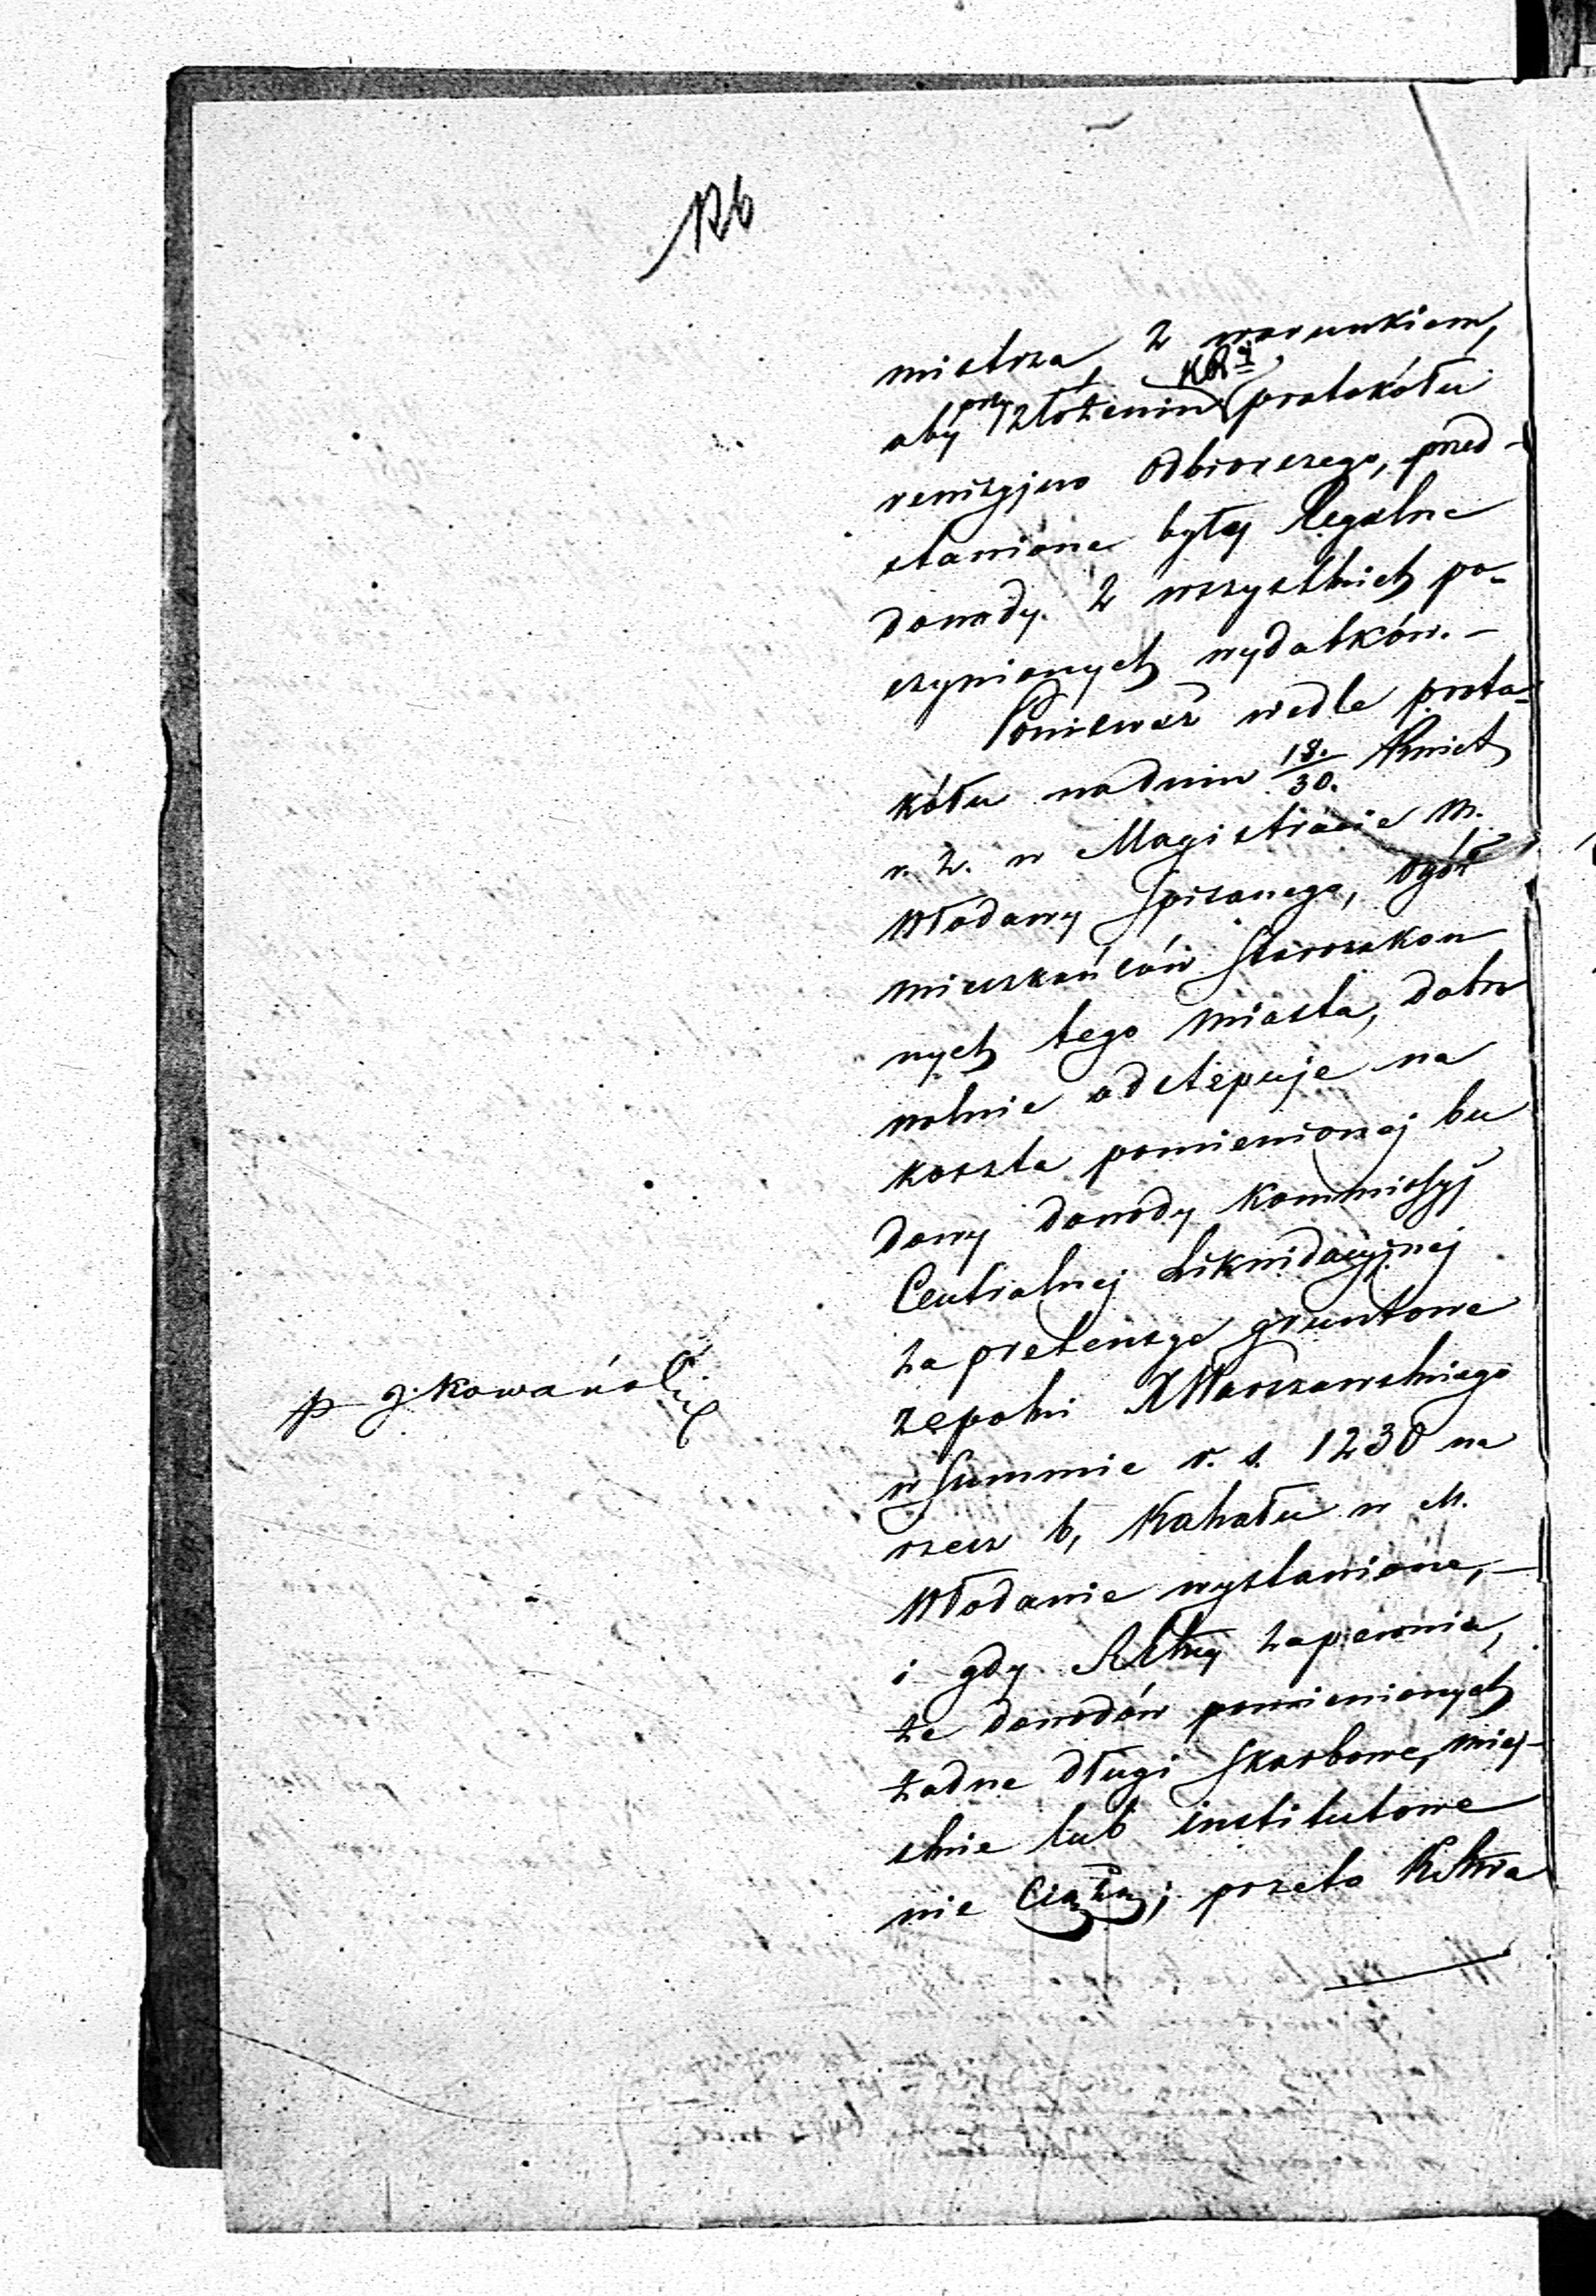 126
mistrza, z warunkiem,
aby przy złożeniu KRz. protokółu
rewizyjno odbiorczego, przed-
stawione były legalne
dowody z wszystkich po-
czynionych wydatków. –
Ponieważ wedle proto-
kółu na dniu 18./30. Kwiet.
r. z. w Magistracie M.
Włodawy spisanego, ogół
mieszkańców Starozakon
nych tego miasta, dobro
wolnie odstępuje na
koszta pomienionej bu
dowy dowody Kommissyi
Centralnej Likwidacyjnej
za pretensye gruntowe
z epoki X Warszawskiego
w Summie r. s. 1230 na
rzecz b, Kahału w M.
Włodawie wystawione, –
i gdy zapewnia,
że dowodów pomienionych
żadne długi Skarbowe, miej-
skie lub institutowe
nie Ciążą; przeto